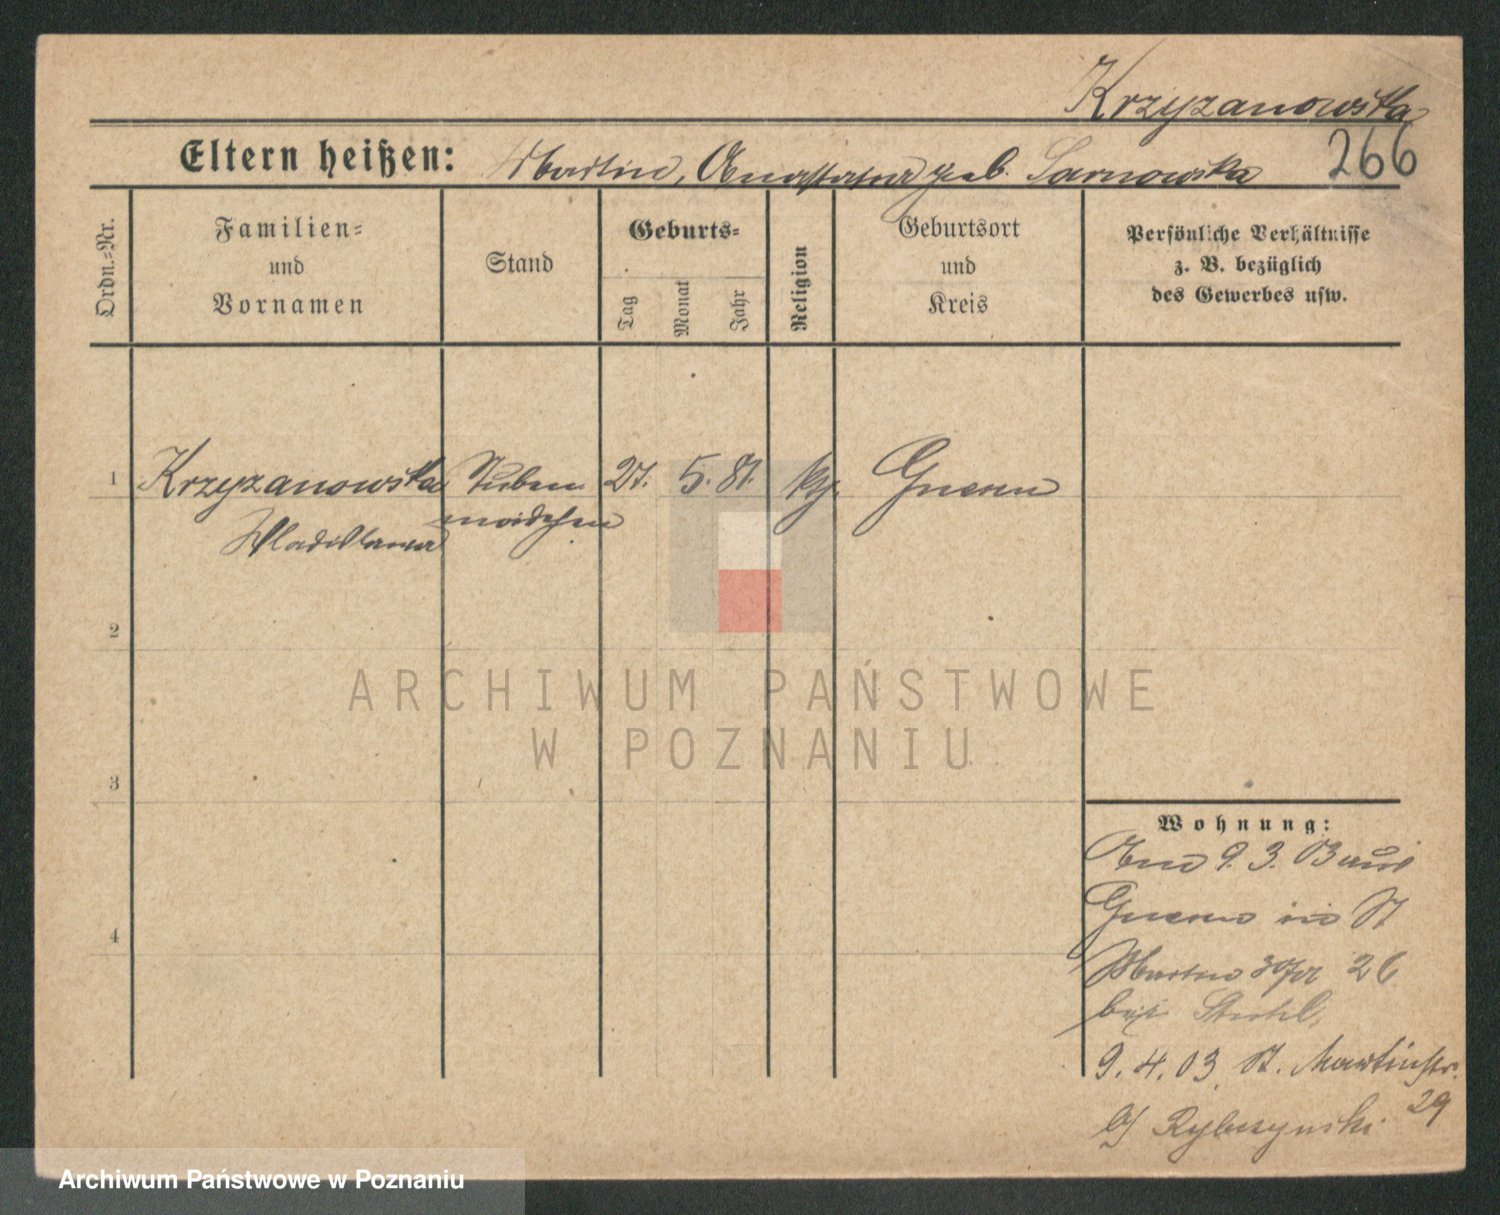 Krzyzanowska
Eltern heißen: Martin, Anastasia geb. Sarnowska 266
Ordn.-Nr.
Familien-
und
Vornamen
Stand
Geburts-
Tag
Monat
Jahr
Religion
Geburtsort
und
Kreis
Persönliche Verhältnisse
z. B. bezüglich
des Gewerbes usw.
1 Krzyzanowska Stuben 27. 5. 81. kth. Gnesen
Wladislawa mädchen
2
3
4
ARCHIWUM PAŃSTWOWE
W POZNANIU
Wohnung:
9. 3. 03 aus
Gnesen in St
Martin 26
bei
9. 4. 03. St. Martinstr.
29
b/ Rybczynski
Archiwum Państwowe w Poznaniu